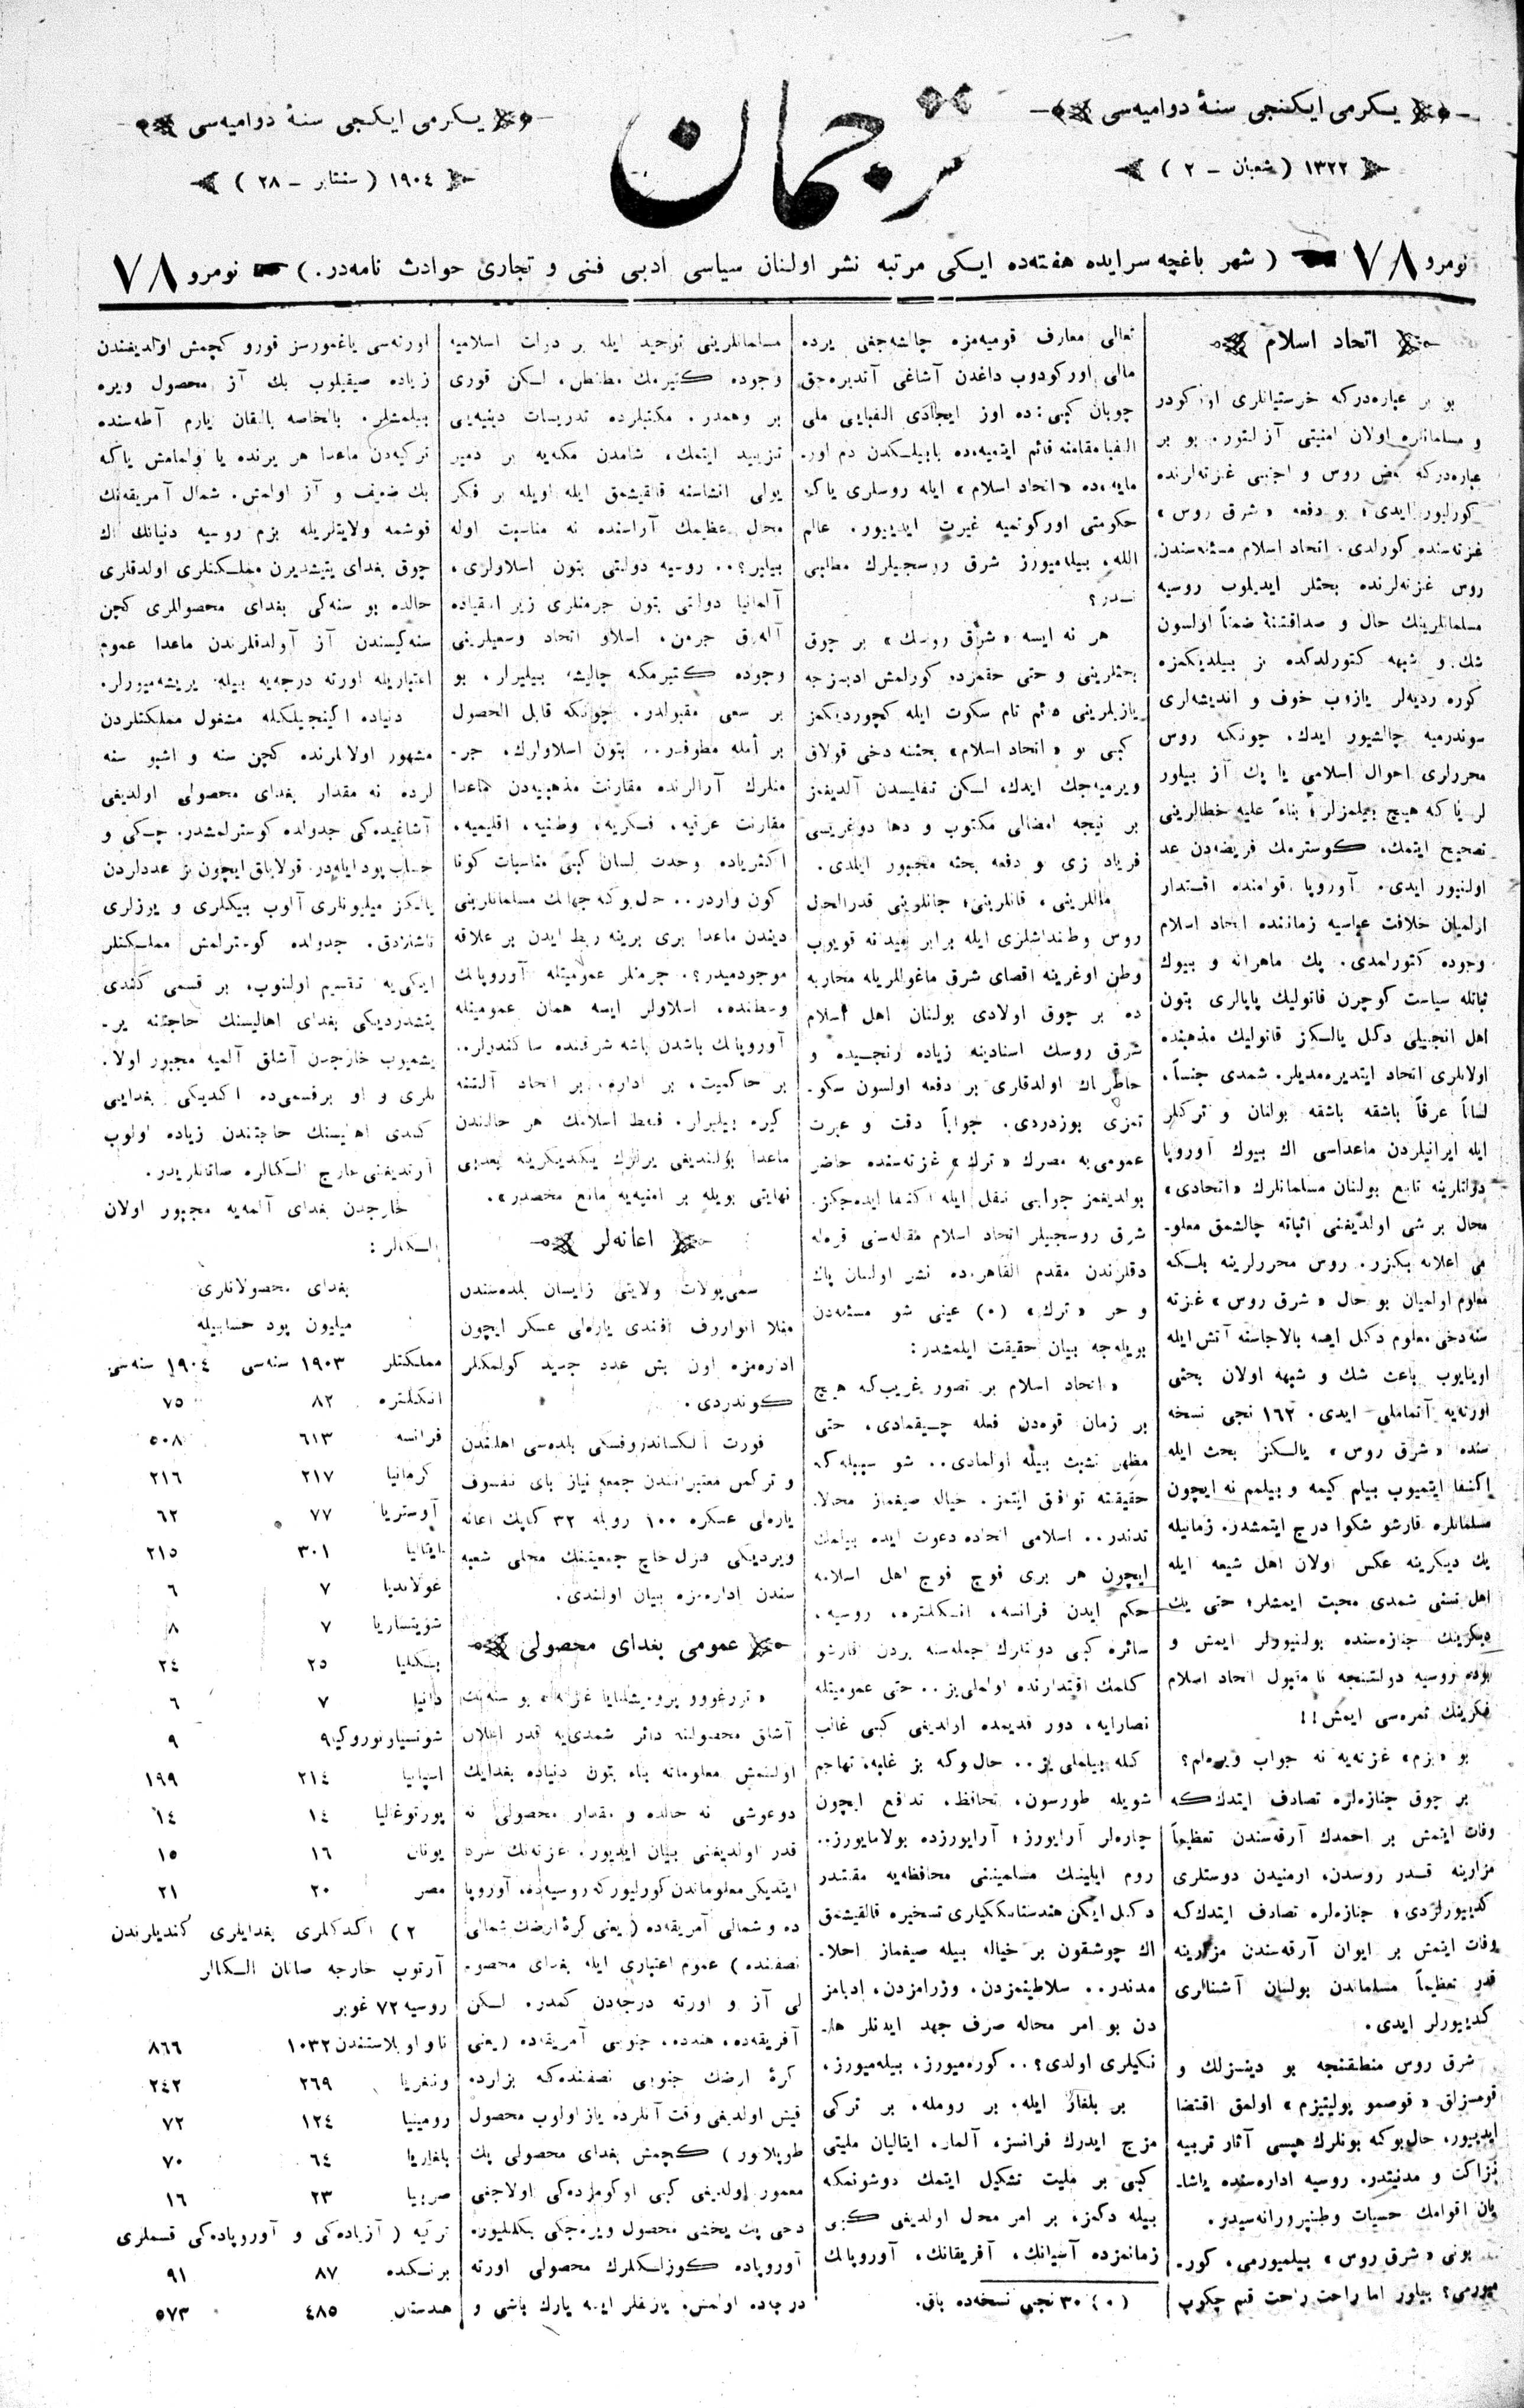 يكرمى ايكنجى سنهٔ دواميه‌سى
١٣٢٢ ( شعبان – ٢ )
ترجمان
يكرمى ايكنجى سنهٔ دواميه‌سى
١٩٠٤ ( سنتابر – ٢٨ )
نومرو ٧٨ ( شهر باغچه سرايده هفته‌ده ايكى مرتبه نشر اولنان سياسى ادبى فنى و تجارى حوادث نامه‌در. ) نومرو ٧٨
اتحاد اسلام
بو بر عباره‌دركه خرستيانلرى اوركودر
و مسلمانلره اولان امنيتى آزلتور. بو بر
عباره‌دركه بعض روس و اجنبى غزته‌لرنده
كورليور ايدى؛ بو دفعه «شرق روس»
غزته‌سنده كورلدى. اتحاد اسلام مسئله‌سندن
روس غزته‌لرنده بحثلر ايديلوب روسيه
مسلمانلرينك حال و صداقتنهٔ ضمناً اولسون
شك و شبهه كتورلدكده بز بيلديكمزه
كوره رديه‌لر يازوب خوف و انديشه‌لرى
سوندرميه چالشيور ايدك. چونكه روس
محررلرى احوال اسلامى يا پك آز بيلور
لر ياكه هيچ بيلمزلر؛ بناءً عليه خطالرينى
تصحيح ايتمك، كوسترمك فريضه‌دن عد
اولنيور ايدى. آوروپا قوامنده اقتدار
ازلميان خلافت عباسيه زماننده اتحاد اسلام
وجوده كتورلمدى. پك ماهرانه و بيوك
ثباتله سياست كوچرن قاتوليك پاپالرى بتون
اهل انجيلى دكل يالكز قاتوليك مذهبنده
اولانلرى اتحاد ايتديره‌مديلر. شمدى جنساً،
لساناً عرفاً باشقه باشقه بولنان و تركلر
ايله ايرانيلردن ماعداسى اك بيوك آوروپا
دولتلرينه تابع بولنان مسلمانلرك «اتحادى»
محال بر شى اولديغنى اثباته چالشمق معلو-
مى اعلانه بكزر. روس محررلرينه بلكه
معلوم اولميان بو حال «شرق روس» غزته
سنه دخى معلوم دكل ايسه بالاجاسنه آتش ايله
اوينايوب باعث شك و شبهه اولان بحثى
اورته‌يه آتماملى ايدى. ١٦٢ نجى نسخه
سنده «شرق روس» يالكز بحث ايله
اكتفا ايتميوب بيلم كيمه و بيلمم نه ايچون
مسلمانلره قارشو شكوا درج ايتمشدر. زمانيله
يك ديكرينه عكس اولان اهل شيعه ايله
اهل تسنى شمدى محبت ايمشلر؛ حتى يك
ديكرينك جنازه‌سنده بولنيورلر ايمش و
بوده روسيه دولتنجه نا مقبول اتحاد اسلام
فكرينك ثمره‌سى ايمش!!
بو «بزم» غزته‌يه نه جواب ويره‌لم؟
بر چوق جنازه‌لره تصادف ايتدك‌كه
وفات ايتمش بر احمدك آرقه‌سندن تعظيماً
مزارينه قدر روسدن، ارمنيدن دوستلرى
كديورلردى؛ جنازه‌لره تصادف ايتدك‌كه
وفات ايتمش بر ايوان آرقه‌سندن مزارينه
قدر تعظيماً مسلماندن بولنان آشنالرى
كديورلر ايدى.
شرق روس منطقنجه بو دينسزلك و
قومسزلق «قوصمو پوليتيزم» اولمق اقتضا
ايديور، حال‌بوكه بونلرك هپسى آثار تربيه
نزاكت و مدنيتدر. روسيه اداره‌سنده ياشا-
يان اقوامك حسيات وطنپرورانه‌سيدر.
بونى «شرق روس» بيلميورمى، كور-
ميورمى؟ بيلور اما راحت راحت قلم چكوب
تعالى معارف قوميه‌مزه چالشه‌جغى يرده
مالى اوركودوب داغدن آشاغى آنديره‌جق
چوبان كبى؛ ده اوز ايجادى الفبايى ملى
الفبا مقامنه قائم ايتميه‌ده
مايه‌ده «اتحاد اسلام» ايله روسلرى ياكه
حكومتى اوركوتميه غيرت ايدييور. عالم
الله، بيله‌ميورز شرق روسجيلرك مطلبى
نه‌در؟
هر نه ايسه «شرق روسك» بر چوق
بحثلرينى و حتى حقمزده كورلمش ادبمزجه
يازيلرينى هم تام سكوت ايله كچورديكمز
كبى بو «اتحاد اسلام» بحثنه دخى قولاق
ويرميه‌جك ايدك، لكن تفليسدن آلديغمز
بر نيجه امضالى مكتوب و دها دوغريسى
فرياد زى بو دفعه بحثه مجبور ايلدى.
ماللرينى، قانلرينى؛ جانلرينى قدرالحال
روس وطنداشلرى ايله برابر ميدانه قويوب
وطن اوغرينه اقصاى شرق ماغوللريله محاربه
ده بر چوق اولادى بولنان اهل اسلام
شرق روسك اسنادينه زياده رنجيده و
خاطرناك اولدقلرى بر دفعه اولسون سكو-
تمزى بوزدردى. جواباً دقت و عبرت
عموميه مصرك «ترك» غزته‌سنده حاضر
بولديغمز جوابى نقل ايله اكتفا ايده‌جكز.
شرق روسجيلر اتحاد اسلام مقاله‌سنى قره‌له
دقلرندن مقدم القاهره‌ده نشر اولنان پاك
و حر «ترك» (٠) عينى شو مسئله‌دن
بويله‌جه بيان حقيقت ايلمشدر:
«اتحاد اسلام بر تصور غريب‌كه هيچ
بر زمان قوه‌دن فعله چيقمادى، حتى
مظهر تشبث بيله اولمادى.. شو سببله كه
حقيقته توافق ايتمز. خياله صيغماز محالا-
تدندر.. اسلامى اتحاده دعوت ايده بيلمك
ايچون هر برى فوج فوج اهل اسلامه
حكم ايدن فرانسه، انكلتره، روسيه،
سائره كبى دولتلرك جمله‌سنه بردن قارشو
كلمك اقتدارنده اولملى‌يز.. حتى عموميتله
نصارايه، دور قديمده اولديغى كبى غالب
كله بيلملى‌يز.. حال بوكه بز غلبه، تهاجم
شويله طورسون، تحافظ، تدافع ايچون
چاره‌لر آرايورز؛ آرايورزده بولامايورز..
روم ايلينك مسلمينى محافظه‌يه مقتدر
دكل ايكن هندستانككيلرى تسخيره قالقيشمق
اك چوشقون بر خياله بيله صيغماز احلا-
مدندر.. سلاطينمزدن، وزرامزدن، ادبامز
دن بو امر محاله صرف جهد ايدنلر ها-
نكيلرى اولدى؟.. كوره‌ميورز، بيله‌ميورز.
بر بلغار ايله، بر رومله، بر تركى
مزج ايدرك فرانسز، آلمان، ايتاليان مليتى
كبى بر مليت تشكيل ايتمك دوشونمكه
بيله دكمز، بر امر محل اولديغى كبى
زمانمزده آسيانك، آفريقانك، آوروپانك
(٠) ٣٠ نجى نسخه‌ده باق.
مسلمانلرينى توحيد ايله بر دولت اسلاميه
وجوده كتيرمك مطنطن، لكن قورى
بر وهمدر. مكتبلرده تدريسات دينيه‌يى
تزييد ايتمك، شامدن مكه‌يه بر دمير
يولى انشاسنه قالقيشمق ايله اويله بر فكر
محال عظيمك آراسنده نه مناسبت اوله
بيلير؟.. روسيه دولتى بتون اسلاولرى،
آلمانيا دولتى بتون جرمنلرى زير انقياده
آله‌رق جرمن، اسلاو اتحاد وسعيلرينى
وجوده كتيرمكه چاليشه بيليرلر. بو
بر سعى مقبولدر. چونكه قابل الحصول
بر أمله معطوفدر.. بتون اسلاولرك، جر-
منلرك آرالرنده مقارنت مذهبيه‌دن ماعدا
مقارنت عرقيه، فكريه، وطنيه، اقليميه،
اكثرياده وحدت لسان كبى مناسبات كونا
كون واردر.. حال بوكه جهانك مسلمانلرينى
ديندن ماعدا برى برينه ربط ايدن بر علاقه
موجودميدر؟. جرمنلر عموميتله آوروپانك
وسطنده، اسلاولر ايسه همان عموميتله
آوروپانك باشدن باشه شرقنده ساكندرلر..
بر حاكميت، بر اداره، بر اتحاد آلتنه
كيره بيليرلر. فقط اسلامك هر حالندن
ماعدا بولنديغى يرلرك يكديكرينه بعديى
نهايتى بويله بر امنيه‌يه مانع محضدر».
اعانه‌لر
سمى‌پولات ولايتى زايسان بلده‌سندن
منلا انواررف افندى ياره‌لى عسكر ايچون
اداره‌مزه اون بش عدد جديد كولمكلر
كوندردى.
فورت الكساندروفسكى بلده‌سى اهلندن
و تركمن معتبرانندن جمعه نياز باى نفسوف
ياره‌لى عسكره ١٠٠ روبله ٣٢ كاپك اعانه
ويرديكى قزل خاچ جمعيتنك محلى شعبه
سندن اداره‌مزه بيان اولندى.
عمومى بغداى محصولى
«تررغووو پروميشلنايا غزته» بو سنه‌نك
آشلق محصولنه دائر شمدى‌يه قدر اعلان
اولنمش معلوماته بناء بتون دنياده بغدايك
دوغوشى نه حالده و مقدار محصولى نه
قدر اولديغنى بيان ايديور. غزته‌نك سرد
ايتديكى معلوماتدن كورليوركه روسيه‌ده، آوروپا
ده و شمالى آمريقه‌ده (يعنى كرهٔ ارضك شمالى
نصفنده) عموم اعتبارى ايله بغداى محصو-
لى آز و اورته درجه‌دن كمدر. لكن
آفريقه‌ده، هندده، جنوبى آمريقه‌ده (يعنى
كرهٔ ارضك جنوبى نصفنده‌كه بزلرده
قيش اولديغى وقت آنلرده ياز اولوب محصول
طوپلانور) كچمش بغداى محصولى پك
معمور اولديغى كبى اوكومزده‌كى اولاجغى
دخى پك يخشى محصول ويره‌جكى بكلنليور.
آوروپاده كوزلكلرك محصولى اورته
درجه‌ده اولمش، يازلقلر ايسه يارك باشى و
اورته‌سى ياغمورسز قورو كچمش اولديغندن
زياده صيقيلوب پك آز محصول ويره
بيلمشلر. بالخاصه بالقان يارم آطه‌سنده
تركيه‌دن ماعدا هر يرنده يا اولمامش ياكه
پك ضعيف و آز اولمش. شمال آمريقه‌نك
قوشمه ولايتلريله بزم روسيه دنيانك اك
چوق بغداى يتيشديرن مملكتلرى اولدقلرى
حالده بو سنه‌كى بغداى محصوللرى كچن
سنه‌كيسندن آز اولدقلرندن ماعدا عموم
اعتباريله اورته درجه‌يه بيله يريشه‌ميورلر.
دنياده اكينجيلكله مشغول مملكتلردن
مشهور اولانلرنده كچن سنه و اشبو سنه
لرده نه مقدار بغداى محصولى اولديغى
آشاغيده‌كى جدولده كوسترلمشدر. چكى و
حساب پود ايله‌در. قولايلق ايچون بز عددلردن
يالكز ميليونلرى آلوب بيكلرى و يوزلرى
تاشلادق. جدولده كوسترلمش مملكتلر
ايكى‌يه تقسيم اولنوب، بر قسمى كندى
يتشدرديكى بغداى اهاليسنك حاجتنه ير-
يشميوب خارجدن آشلق آلميه مجبور اولا-
نلرى و او برقسمى‌ده اكديكى بغدايى
كندى اهليسنك حاجتندن زياده اولوب
آرتديغنى خارج الكالره صاتانلريدر.
خارجدن بغداى آلمه‌يه مجبور اولان
الكالر:
بغداى محصولاتلرى
ميليون پود حسابيله
مملكتلر ١٩٠٣ سنه‌سى ١٩٠٤ سنه‌سى
انكلتره ٨٢ ٧٥
فرانسه ٦١٣ ٥٠٨
كرمانيا ٢١٧ ٢١٦
آوستريا ٧٧ ٦٢
ايتاليا ٣٠١ ٢١٥
غوللانديا ٧ ٦
شويتساريا ٧ ٨
بلكيا ٢٥ ٢٤
دانيا ٧ ٦
شوتسيا و نوروكيا ٩ ٩
اسپانيا ٢١٤ ١٩٩
پورتوغاليا ١٤ ١٤
يونان ١٦ ١٥
مصر ٢٠ ٢١
٢) اكدكلرى بغدايلرى كنديلرندن
آرتوب خارجه صاتان الكالر
روسيه ٧٢ غوبر
نا و اوبلاستندن ١٠٣٢ ٨٦٦
ونغريا ٢٦٩ ٢٤٢
رومينيا ١٢٤ ٧٢
بلغاريا ٦٤ ٧٠
صربيا ٢٣ ١٦
تركيه (آزياده‌كى و آوروپاده‌كى قسملرى
برنكده ٨٧ ٩١
هندستان ٤٨٥ ٥٧٣